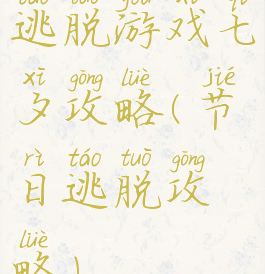 táo tuō yóu xì qī
逃脱游戏七
xī gōng lüè jié
夕攻略(节
rì táo tuō gōng
日逃脱攻
lüè
略)